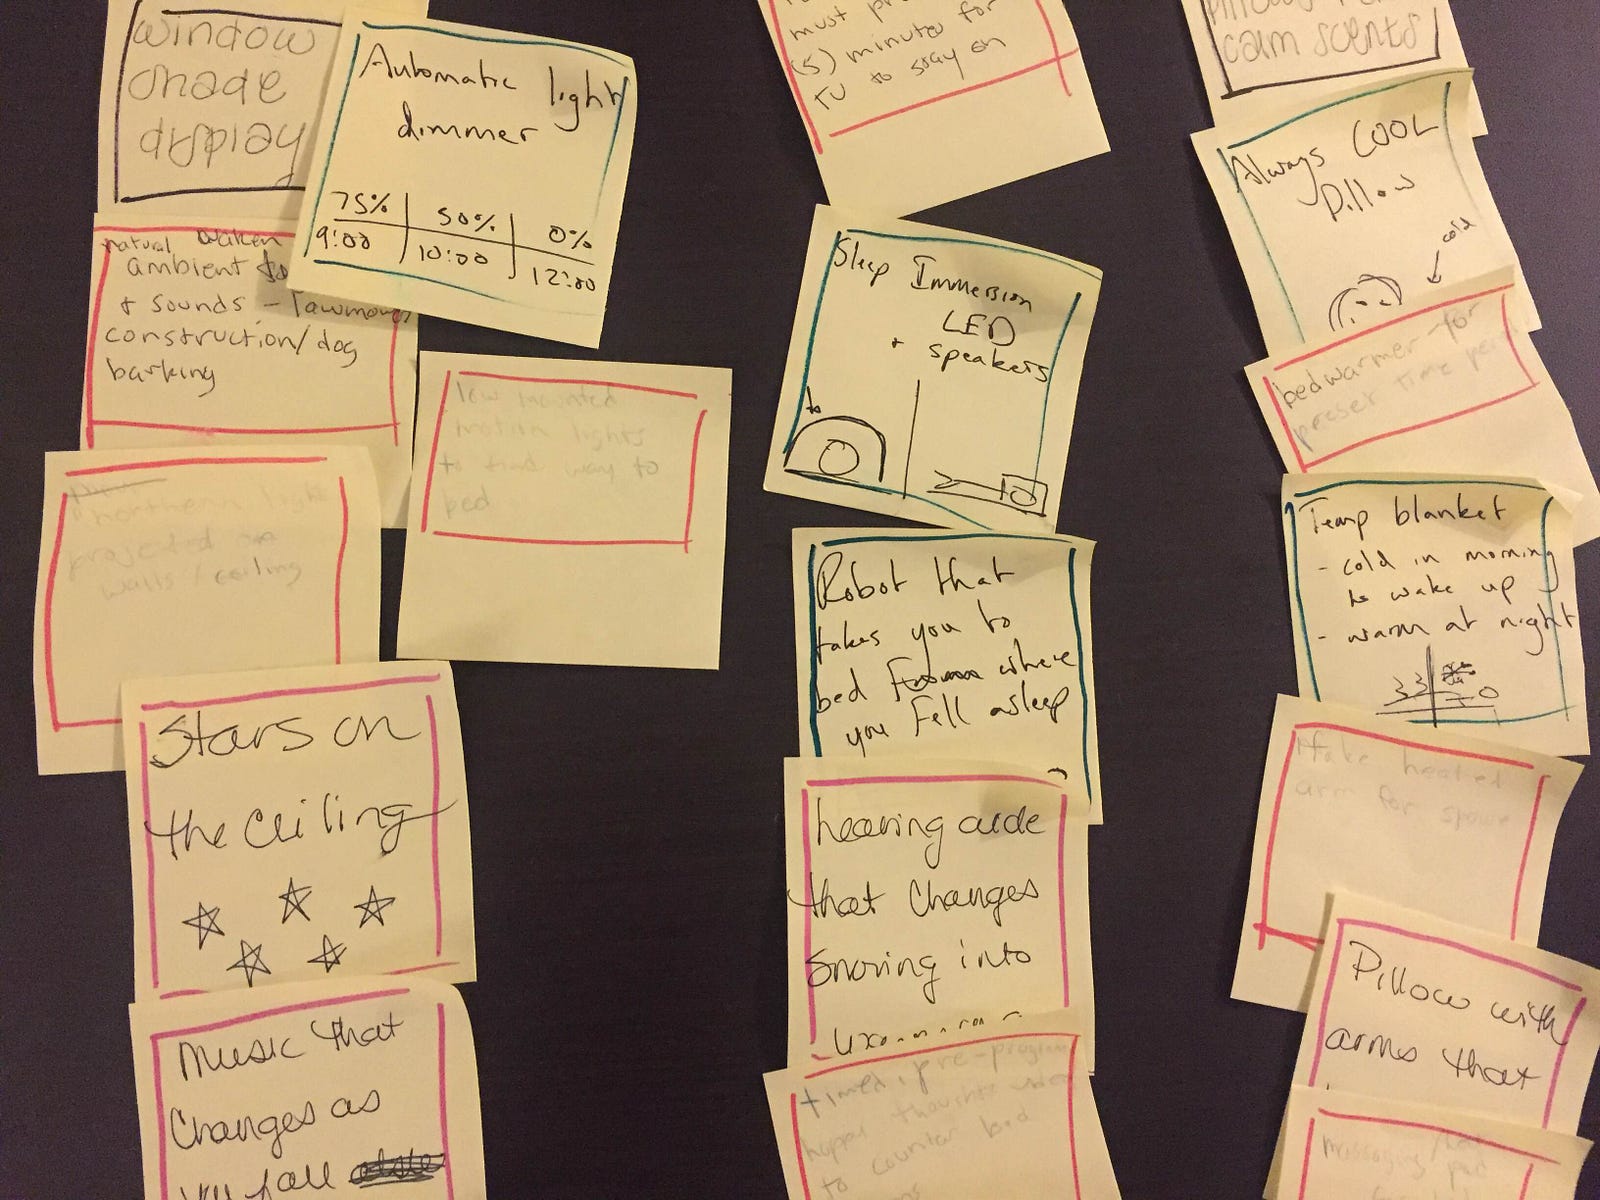 window
shade
display
Automatic light
dimmer
75% 50% 0%
9:00 10:00 12:00
natural waken
ambient
+ sounds -
construction/dog
barking
low mounted
motion lights
to find way to
bed
northern light
projected on
walls/ceiling
Stars on
the ceiling
Music that
Changes as
you fall
must
(5) minutes for
TV to stay on
Sleep Immersion
LED
+ speakers
Robot that
takes you to
bed where
you fell asleep
hearing aide
that changes
snoring into
timed, pre-program
happy thoughts when
to counter bad
calm scents
Always COOL
Pillow
cold
bedwarmer for
preset time
Temp blanket
- cold in morning
to wake up
- warm at night
fake heated
arm for spouse
Pillow with
arms that
massaging
pad